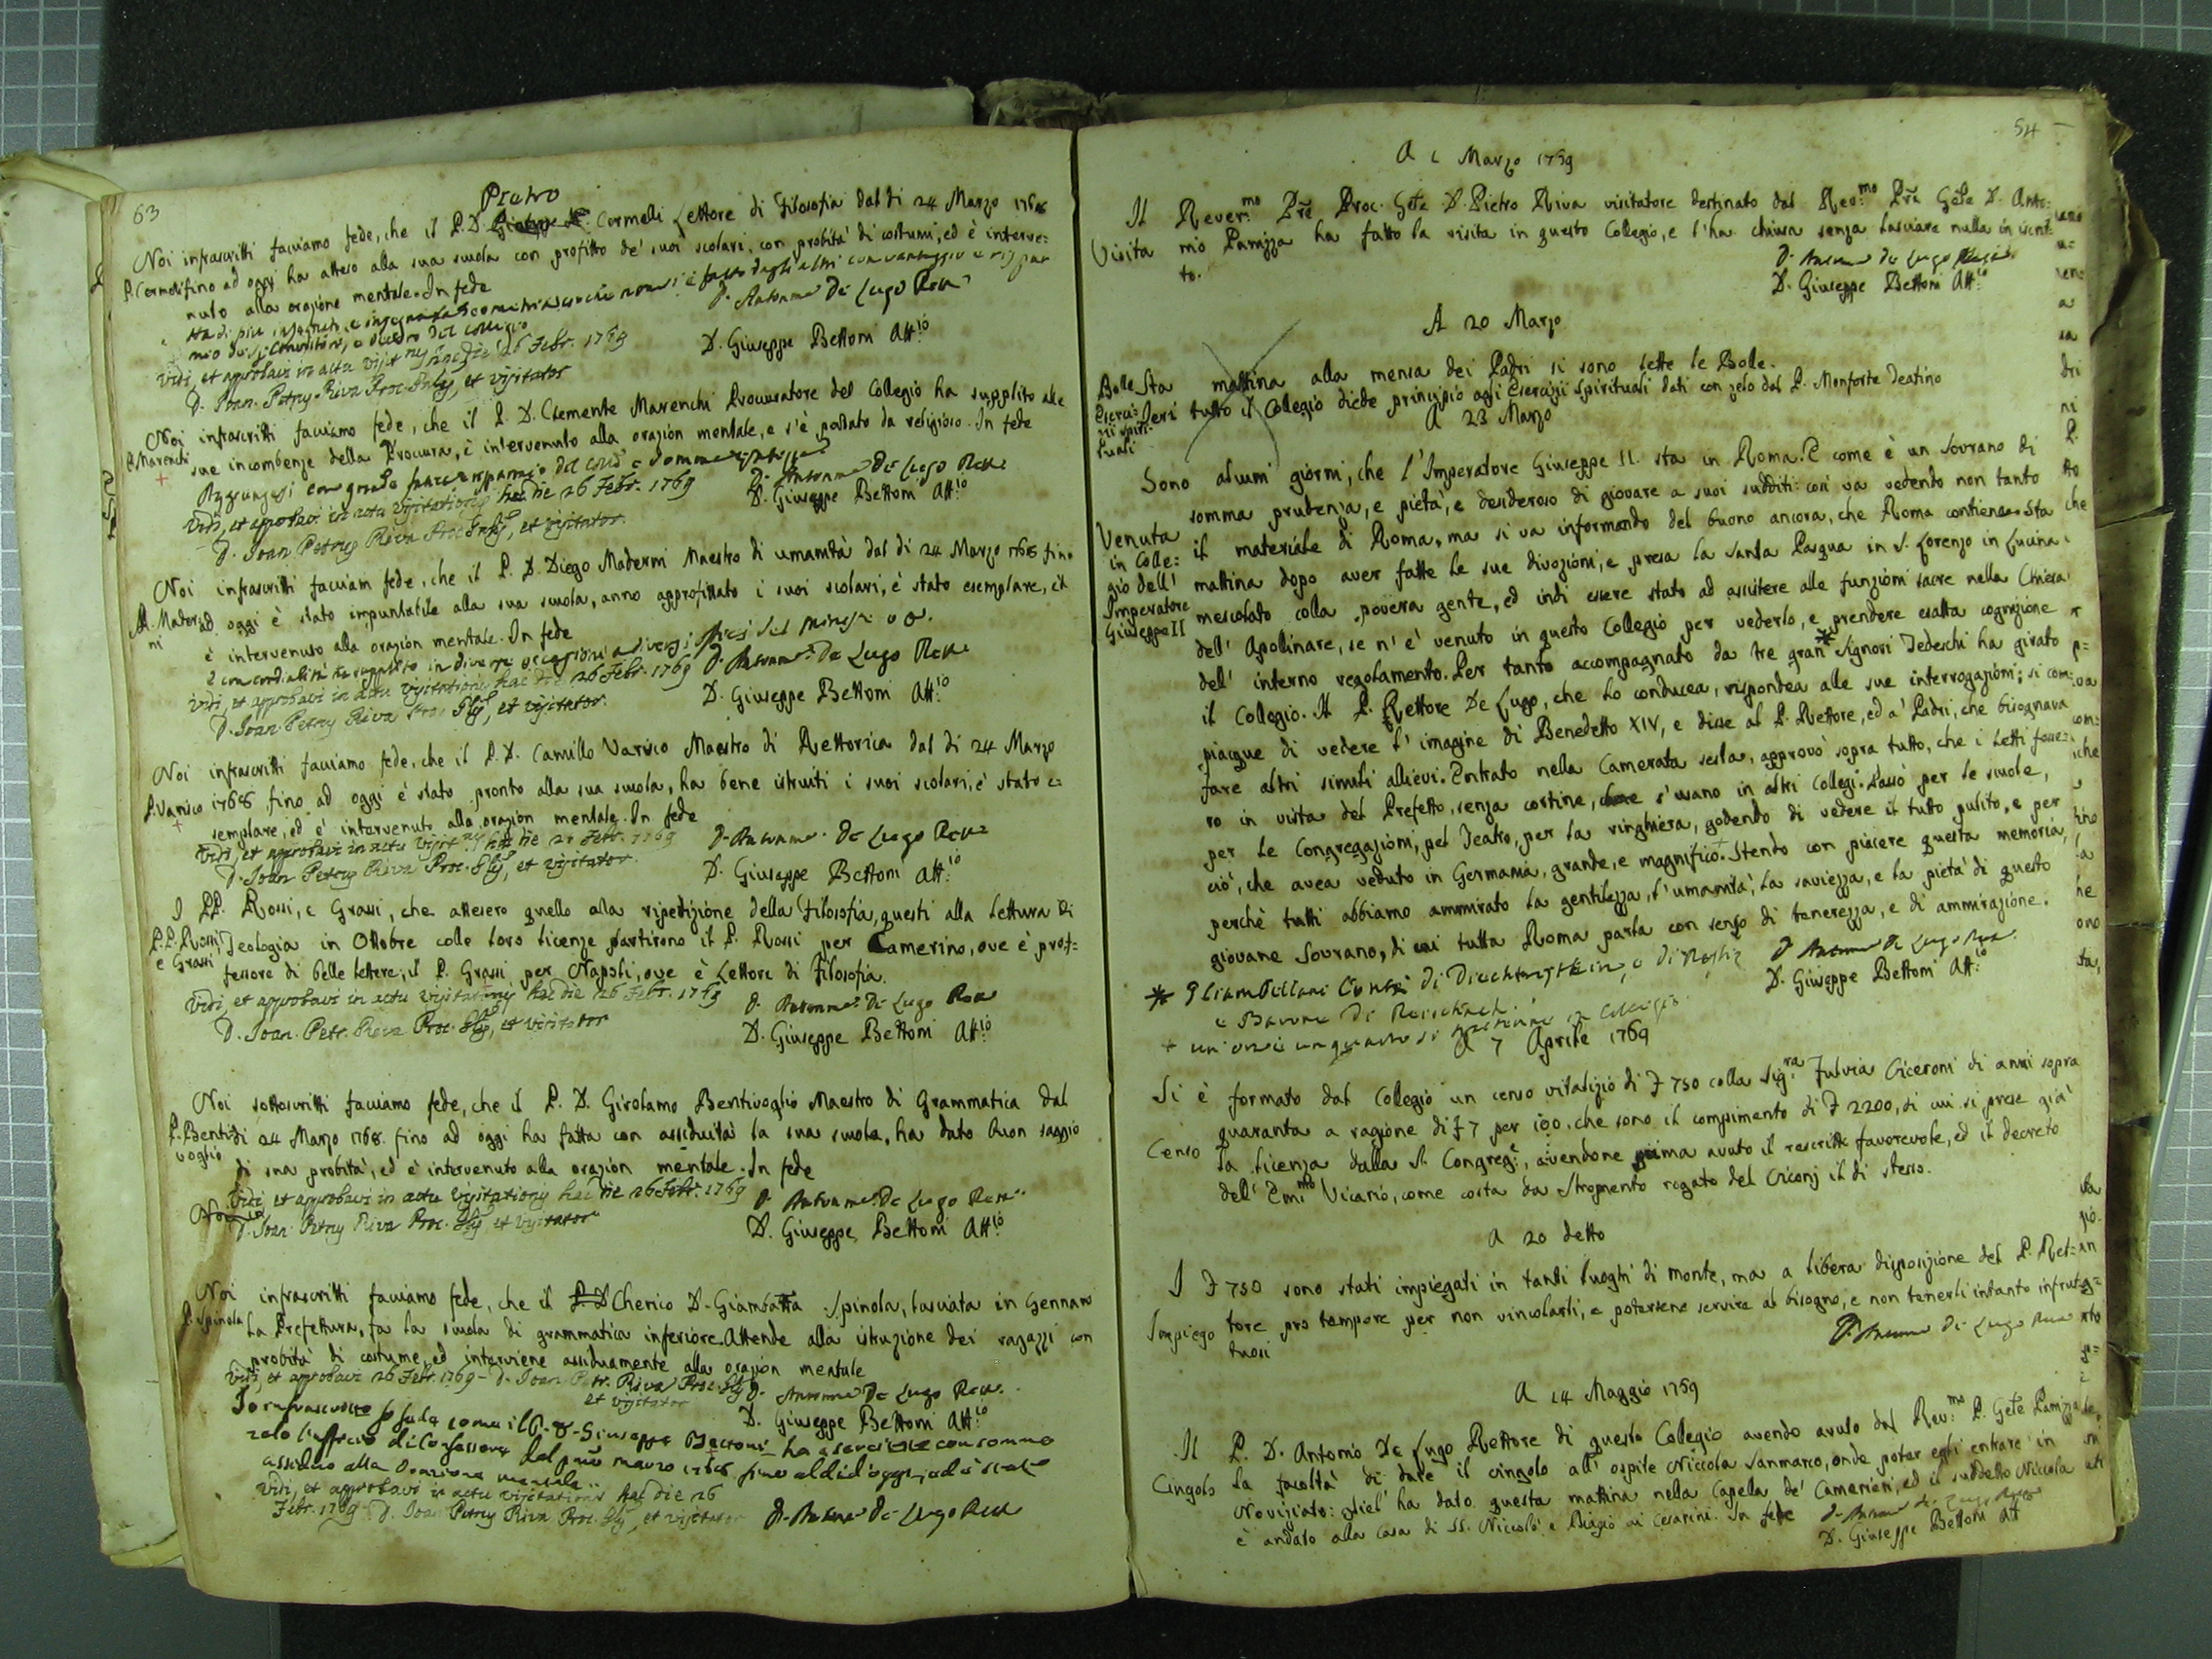 63
Pietro
Noi infrascritti facciamo fede, che il P. D. Cormelli Lettore di Filosofia dal di 24 Marzo 1768
P. Cormelli fino ad oggi ha atteso alla sua scuola con profitto de' suoi scolari, con probità di costumi, ed è interve:
nuto alla orazione mentale. In fede
D. Antonio De Lugo Rett.e
D. Giuseppe Bettoni Att.rio
Vidi, et approbavi in actu visit.nis hac die 26 Febr. 1769
D. Joan. Petrus Riva Proc. Glis, et visitator
Noi infrascritti facciamo fede, che il P. D. Clemente Marenchi Procuratore del Collegio ha supplito alle
P. Marenchi
sue incombenze della Procura, è intervenuto alla orazion mentale, e s'è portato da religioso. In fede
D. Antonio De Lugo Rett.e
Vidi, et approbavi in actu visitationis hac die 26 Febr. 1769
D. Giuseppe Bettoni Att.rio
D. Joan Petrus Riva Proc. Glis, et visitator.
Noi infrascritti facciam fede, che il P. D. Diego Maderni Maestro di umanità dal di 24 Marzo 1768 fino
P. Maderni
ad oggi è stato impuntabile alla sua scuola, anno approfittato i suoi scolari, è stato esemplare, ed
è intervenuto alla orazion mentale. In fede
D. Antonio De Lugo Rett.e
Vidi, et approbavi in actu visitationis hac die 26 Febr. 1769
D. Giuseppe Bettoni Att.rio
D. Joan Petrus Riva Proc. Glis, et visitator.
Noi infrascritti facciamo fede, che il P. D. Camillo Varisco Maestro di Rettorica dal di 24 Marzo
P. Varisco 1768 fino ad oggi è stato pronto alla sua scuola, ha bene istruiti i suoi scolari, è stato e:
semplare, ed è intervenuto alla orazion mentale. In fede
Vidi, et approbavi in actu visit.nis hac die 26 Febr. 1769
D. Antonio De Lugo Rett.e
D. Joan Petrus Riva Proc. Glis, et visitator.
D. Giuseppe Bettoni Att.rio
I PP. Rossi, e Grassi, che attesero quello alla ripetizione della Filosofia, questi alla Lettura di
P.P. Rossi, e Grassi
Teologia in Ottobre colle loro licenze partirono il P. Rossi per Camerino, ove è prof:
fessore di belle lettere; il P. Grassi per Napoli, ove è Lettore di Filosofia.
Vidi, et approbavi in actu visitationis hac die 26 Febr. 1769
D. Antonio De Lugo Rett.e
D. Joan. Petr. Riva Proc. Glis, et visitator
D. Giuseppe Bettoni Att.rio
Noi sottoscritti facciamo fede, che il P. D. Girolamo Bentivoglio Maestro di Grammatica dal
P. Bentivoglio
di 24 Marzo 1768. fino ad oggi ha fatta con assiduità la sua scuola, ha dato buon saggio
di sua probità, ed è intervenuto alla orazion mentale. In fede
Vidi, et approbavi in actu visitationis hac die 26 Febr. 1769
D. Antonio De Lugo Rett.e
D. Joan Petrus Riva Proc. Glis et visitator
D. Giuseppe Bettoni Att.rio
Noi infrascritti facciamo fede, che il Cherico D. Giambatta Spinola, lasciata in Gennaro
P. Spinola
La Prefettura, fa la scuola di grammatica inferiore. Attende alla istruzione dei ragazzi con
probità di costume, ed interviene assiduamente alla orazion mentale
Vidi, et approbavi 26 Febr. 1769 - D. Joan. Petr. Riva Proc. Glis
et visitator
D. Antonio De Lugo Rett.e
D. Giuseppe Bettoni Att.rio
Io infrascritto fo fede come il P. D. Giuseppe Bettoni ha esercitato con sommo
zelo l'officio di Confessore dal p.mo marzo 1768 fino al dì d'oggi, ed è stato
assiduo alla Orazione mentale..
Vidi, et approbavi in actu visitationis hac die 26
Febr. 1769 D. Joan Petrus Riva Proc. Glis, et visitator
D. Antonio De Lugo Rett.e
54
A 1 Marzo 1769
Il Rever.mo Pre Proc. Gele D. Pietro Riva visitatore destinato dal Rev.mo Pre Gele D. Anto:
Visita
nio Panizza ha fatto la visita in questo Collegio, e l'ha chiusa senza lasciare nulla in iscrit:
to.
D. Antonio De Lugo Rett.e
D. Giuseppe Bettoni Att.rio
A 20 Marzo
Bolle
Sta mattina alla mensa dei Padri si sono lette le Bolle.
Esercizii spirituali
Jeri tutto il Collegio diede principio agli Esercizii Spirituali dati con zelo dal P. Monforte Teatino
A 23 Marzo
Sono alcuni giorni, che l'Imperatore Giuseppe II. sta in Roma. E come è un sovrano di
somma prudenza, e pietà, e desideroso di giovare a suoi sudditi: così va vedendo non tanto
Venuta in Collegio dell' Imperatore Giuseppe II
il materiale di Roma, ma si va informando del buono ancora, che Roma contiene. Sta
mattina dopo aver fatte le sue divozioni, e presa la santa Pasqua in S. Lorenzo in Lucina
mescolato colla povera gente, ed indi essere stato ad assistere alle funzioni sacre nella Chiesa
dell' Apolinare, se n'è venuto in questo Collegio per vederlo, e prendere esatta cognizione
del' interno regolamento. Per tanto accompagnato da tre gran * Signori Tedeschi ha girato
il Collegio. Il P. Rettore De Lugo, che lo conducea, rispondea alle sue interrogazioni; si com:
piacque di vedere l' imagine di Benedetto XIV, e disse al P. Rettore, ed a' Padri, che bisognava
fare altri simili allievi. Entrato nella Camerata sesta, approvò sopra tutto, che i letti fosse:
ro in vista del Prefetto, senza cortine, s'usano in altri Collegi. Passò per le scuole,
per le Congregazioni, pel Teatro, per la ringhiera, godendo di vedere il tutto pulito, e per
ciò, che avea veduto in Germania, grande, e magnifico. + Stendo con piacere questa memoria,
perchè tutti abbiamo ammirato la gentilezza, l'umanità, la saviezza, e la pietà di questo
giovane Sovrano, di cui tutta Roma parla con senso di tenerezza, e di ammirazione.
D. Antonio De Lugo Rett.e
D. Giuseppe Bettoni Att.rio
A 7 Aprile 1769
Si è formato dal Collegio un censo vitalizio di 750 colla Sig.ra Fulvia Ciceroni di anni sopra
quaranta a ragione di 7 per 100. che sono il compimento di 2200, di cui si prese già
Censo
la licenza dalla S. Congreg.e, avendone prima avuto il rescritto favorevole, ed il decreto
del' Em.mo Vicario, come costa da Stromento rogato del Ciconj il di stesso.
A 20 detto
I 750 sono stati impiegati in tanti luoghi di monte, ma a libera disposizione del P. Ret:
Impiego
tore pro tempore per non vincolarli, e potersene servire al bisogno, e non tenerli intanto infrut
tuosi
D. Antonio De Lugo Rett.e
A 14 Maggio 1769
Il P. D. Antonio De Lugo Rettore di questo Collegio avendo avuto dal Rev.mo P. Gele Panizza
Cingolo
la facoltà di dare il cingolo all' ospite Niccola Sanmarco, onde poter egli entrare in
Noviziato: gliel' ha dato questa mattina nella Capella de' Camerieri, ed il suddetto Niccola
è andato alla Casa di SS. Niccolò e Biagio ai Cesarini. In fede
D. Antonio De Lugo Rett.e
D. Giuseppe Bettoni Att